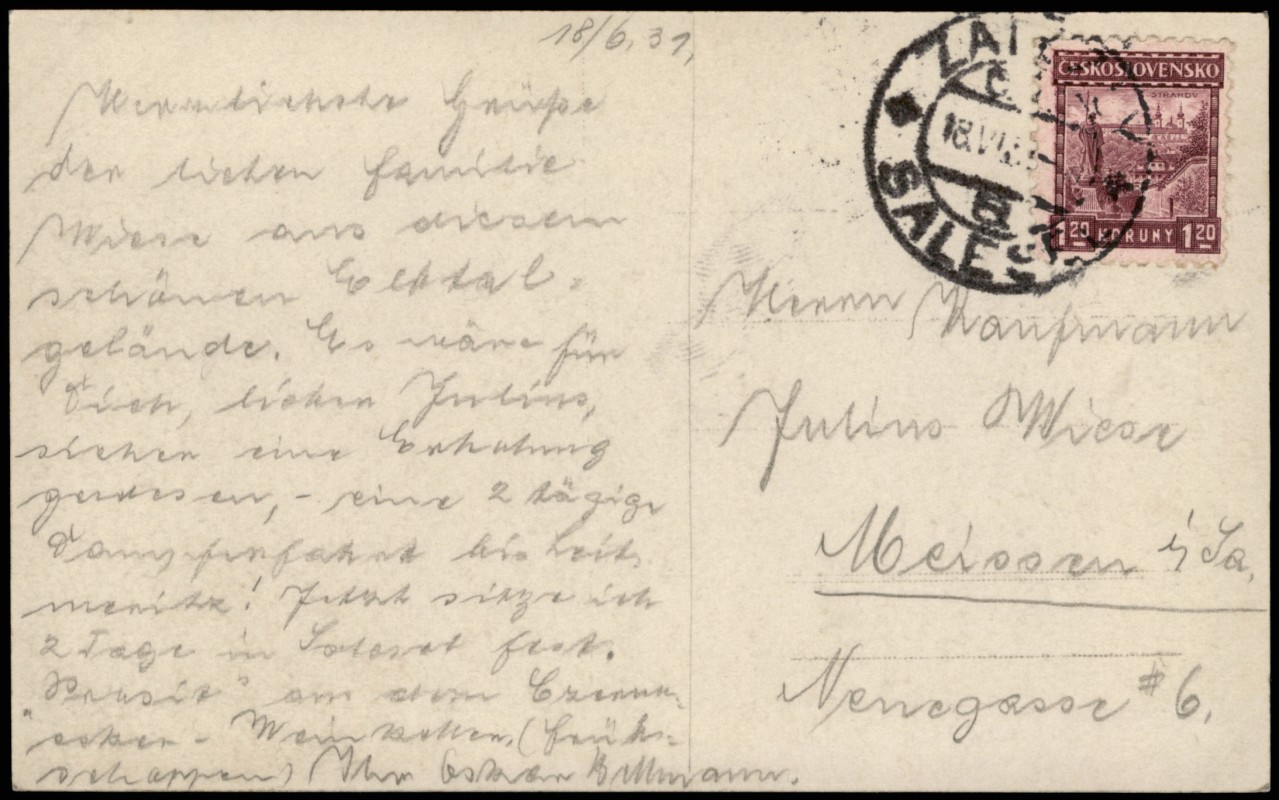 18/6. 31,
Herrlichste Grüße
der lieben Familie
Wiese aus diesem
schönen Elbtal-
gelände. Es wäre für
Dich, lieber Julius,
sicher eine Erholung
gewesen, - eine 2 tägige
Dampferfahrt bis Leit-
meritz! Jetzt sitze ich
2 Tage in Salesel fest.
"Prosit" aus dem Czerno-
seker - Weinkeller, (Früh-
schoppen) Ihr Oskar
ČESKOSLOVENSKO
STRAHOV
1 20 KORUNY 1 20
18.VI.
SALESL
Herrn Kaufmann
Julius Wiese
Meissen i/Sa.
Neuegasse # 6.